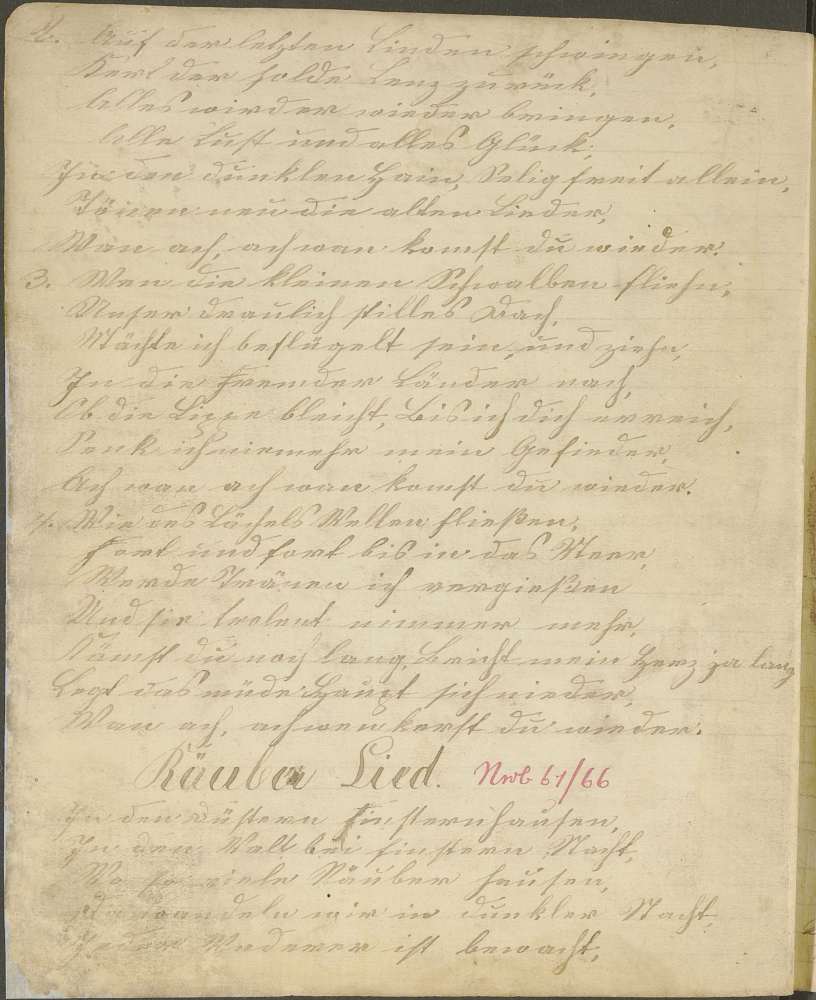 2. Auf der letzten Linden schwingen,
Kert der holde Lenz zurück,
Alles wird er wieder bringen,
Alle Lust und alles Glück,
In den dunklen Hain, Selig freit allein,
Tönen neu die alten Lieder,
Wan ach, ach wan komst du wieder.
3. Wen die kleinen Schwalben fliehn,
Unser draulich stilles Dach,
Mächte ich beflügelt sein, und ziehn,
In die Fremder Länder nach,
Ob die Lippe bleicht, Bis ich dich erreich,
Senk ich niemehr mein Gefieder,
Ach wan ach wan komst du wieder.
4. Wie des Bächels Wellen fließen,
Fort und fort bis in das Meer,
Werde Tränen ich vergießen
Und sie nimmer mehr,
Kämst du noch lang, bricht mein Herz ja lang
Legt das müde Haupt sich nieder,
Wan ach, ach wen du wieder.
Räuber Lied. 61/66
In den düstern finsternhausen,
In den Walt bei finstern Nacht,
Wo so viele Räuber hausen,
Da wandeln wir in dunkler Nacht,
Jeder ist bewacht,